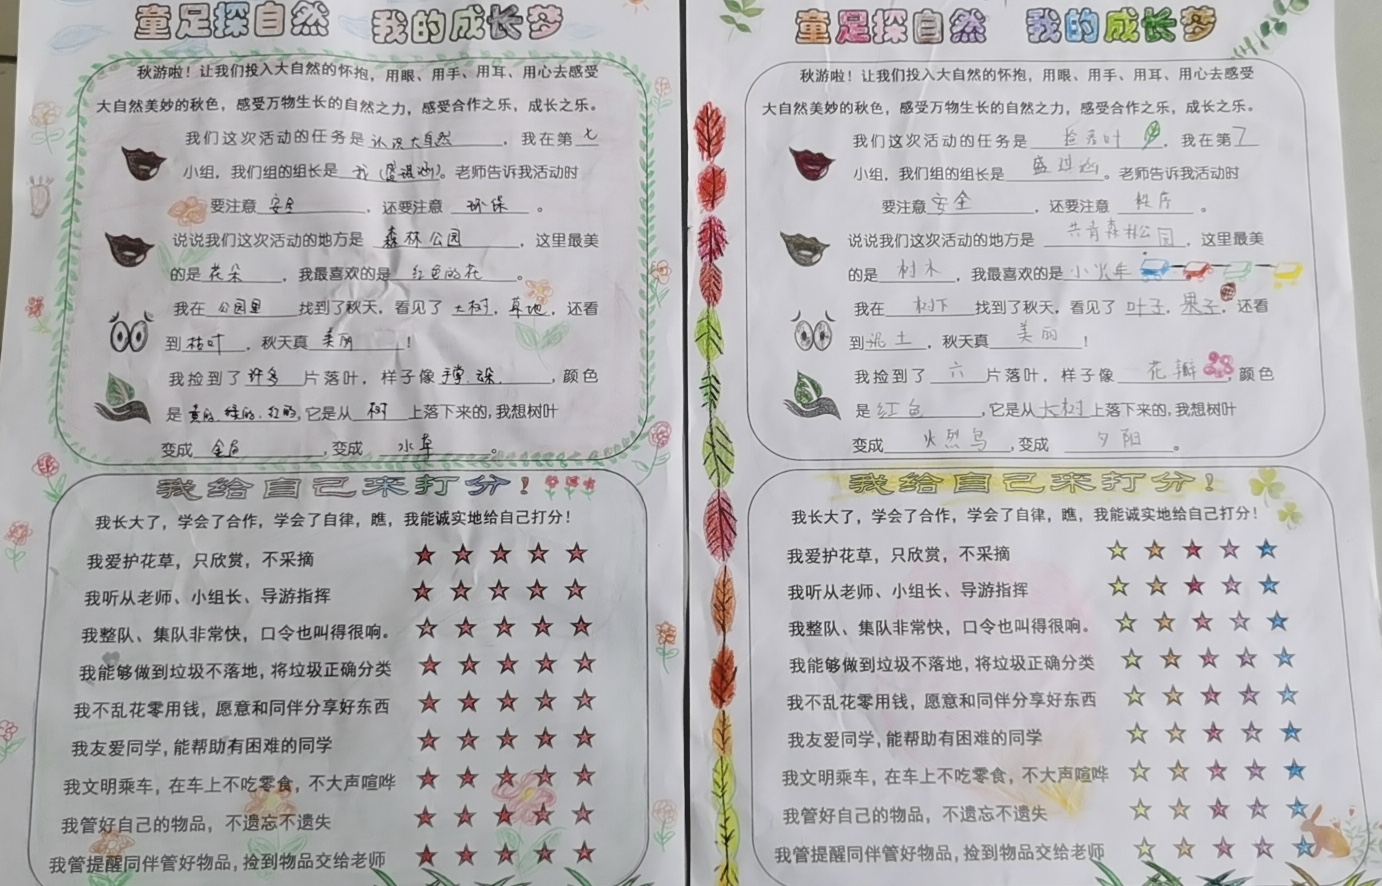 童足探自然 我的成长梦
秋游啦！让我们投入大自然的怀抱，用眼、用手、用耳、用心去感受
大自然美妙的秋色，感受万物生长的自然之力，感受合作之乐，成长之乐。
我们这次活动的任务是认识大自然，我在第七
小组，我们组的组长是我（盛淇涵）。老师告诉我活动时
要注意安全，还要注意环保。
说说我们这次活动的地方是森林公园，这里最美
的是花朵，我最喜欢的是红色的花。
我在公园里找到了秋天，看见了大树，草地，还看
到枯叶，秋天真美丽！
我捡到了许多片落叶，样子像手掌，颜色
是黄的、绿的、红的，它是从树上落下来的，我想树叶
变成，变成水草。
我给自己来打分！
我长大了，学会了合作，学会了自律，瞧，我能诚实地给自己打分！
我爱护花草，只欣赏，不采摘
我听从老师、小组长、导游指挥
我整队、集队非常快，口令也叫得很响。
我能够做到垃圾不落地，将垃圾正确分类
我不乱花零用钱，愿意和同伴分享好东西
我友爱同学，能帮助有困难的同学
我文明乘车，在车上不吃零食，不大声喧哗
我管好自己的物品，不遗忘不遗失
我管提醒同伴管好物品，捡到物品交给老师
童足探自然 我的成长梦
秋游啦！让我们投入大自然的怀抱，用眼、用手、用耳、用心去感受
大自然美妙的秋色，感受万物生长的自然之力，感受合作之乐，成长之乐。
我们这次活动的任务是捡落叶，我在第7
小组，我们组的组长是盛淇涵。老师告诉我活动时
要注意安全，还要注意秩序。
说说我们这次活动的地方是共青森林公园，这里最美
的是树木，我最喜欢的是小火车
我在树下找到了秋天，看见了叶子，果子，还看
到泥土，秋天真美丽！
我捡到了六片落叶，样子像花瓣，颜色
是红色，它是从大树上落下来的，我想树叶
变成火烈鸟，变成夕阳。
我给自己来打分！
我长大了，学会了合作，学会了自律，瞧，我能诚实地给自己打分！
我爱护花草，只欣赏，不采摘
我听从老师、小组长、导游指挥
我整队、集队非常快，口令也叫得很响。
我能够做到垃圾不落地，将垃圾正确分类
我不乱花零用钱，愿意和同伴分享好东西
我友爱同学，能帮助有困难的同学
我文明乘车，在车上不吃零食，不大声喧哗
我管好自己的物品，不遗忘不遗失
我管提醒同伴管好物品，捡到物品交给老师